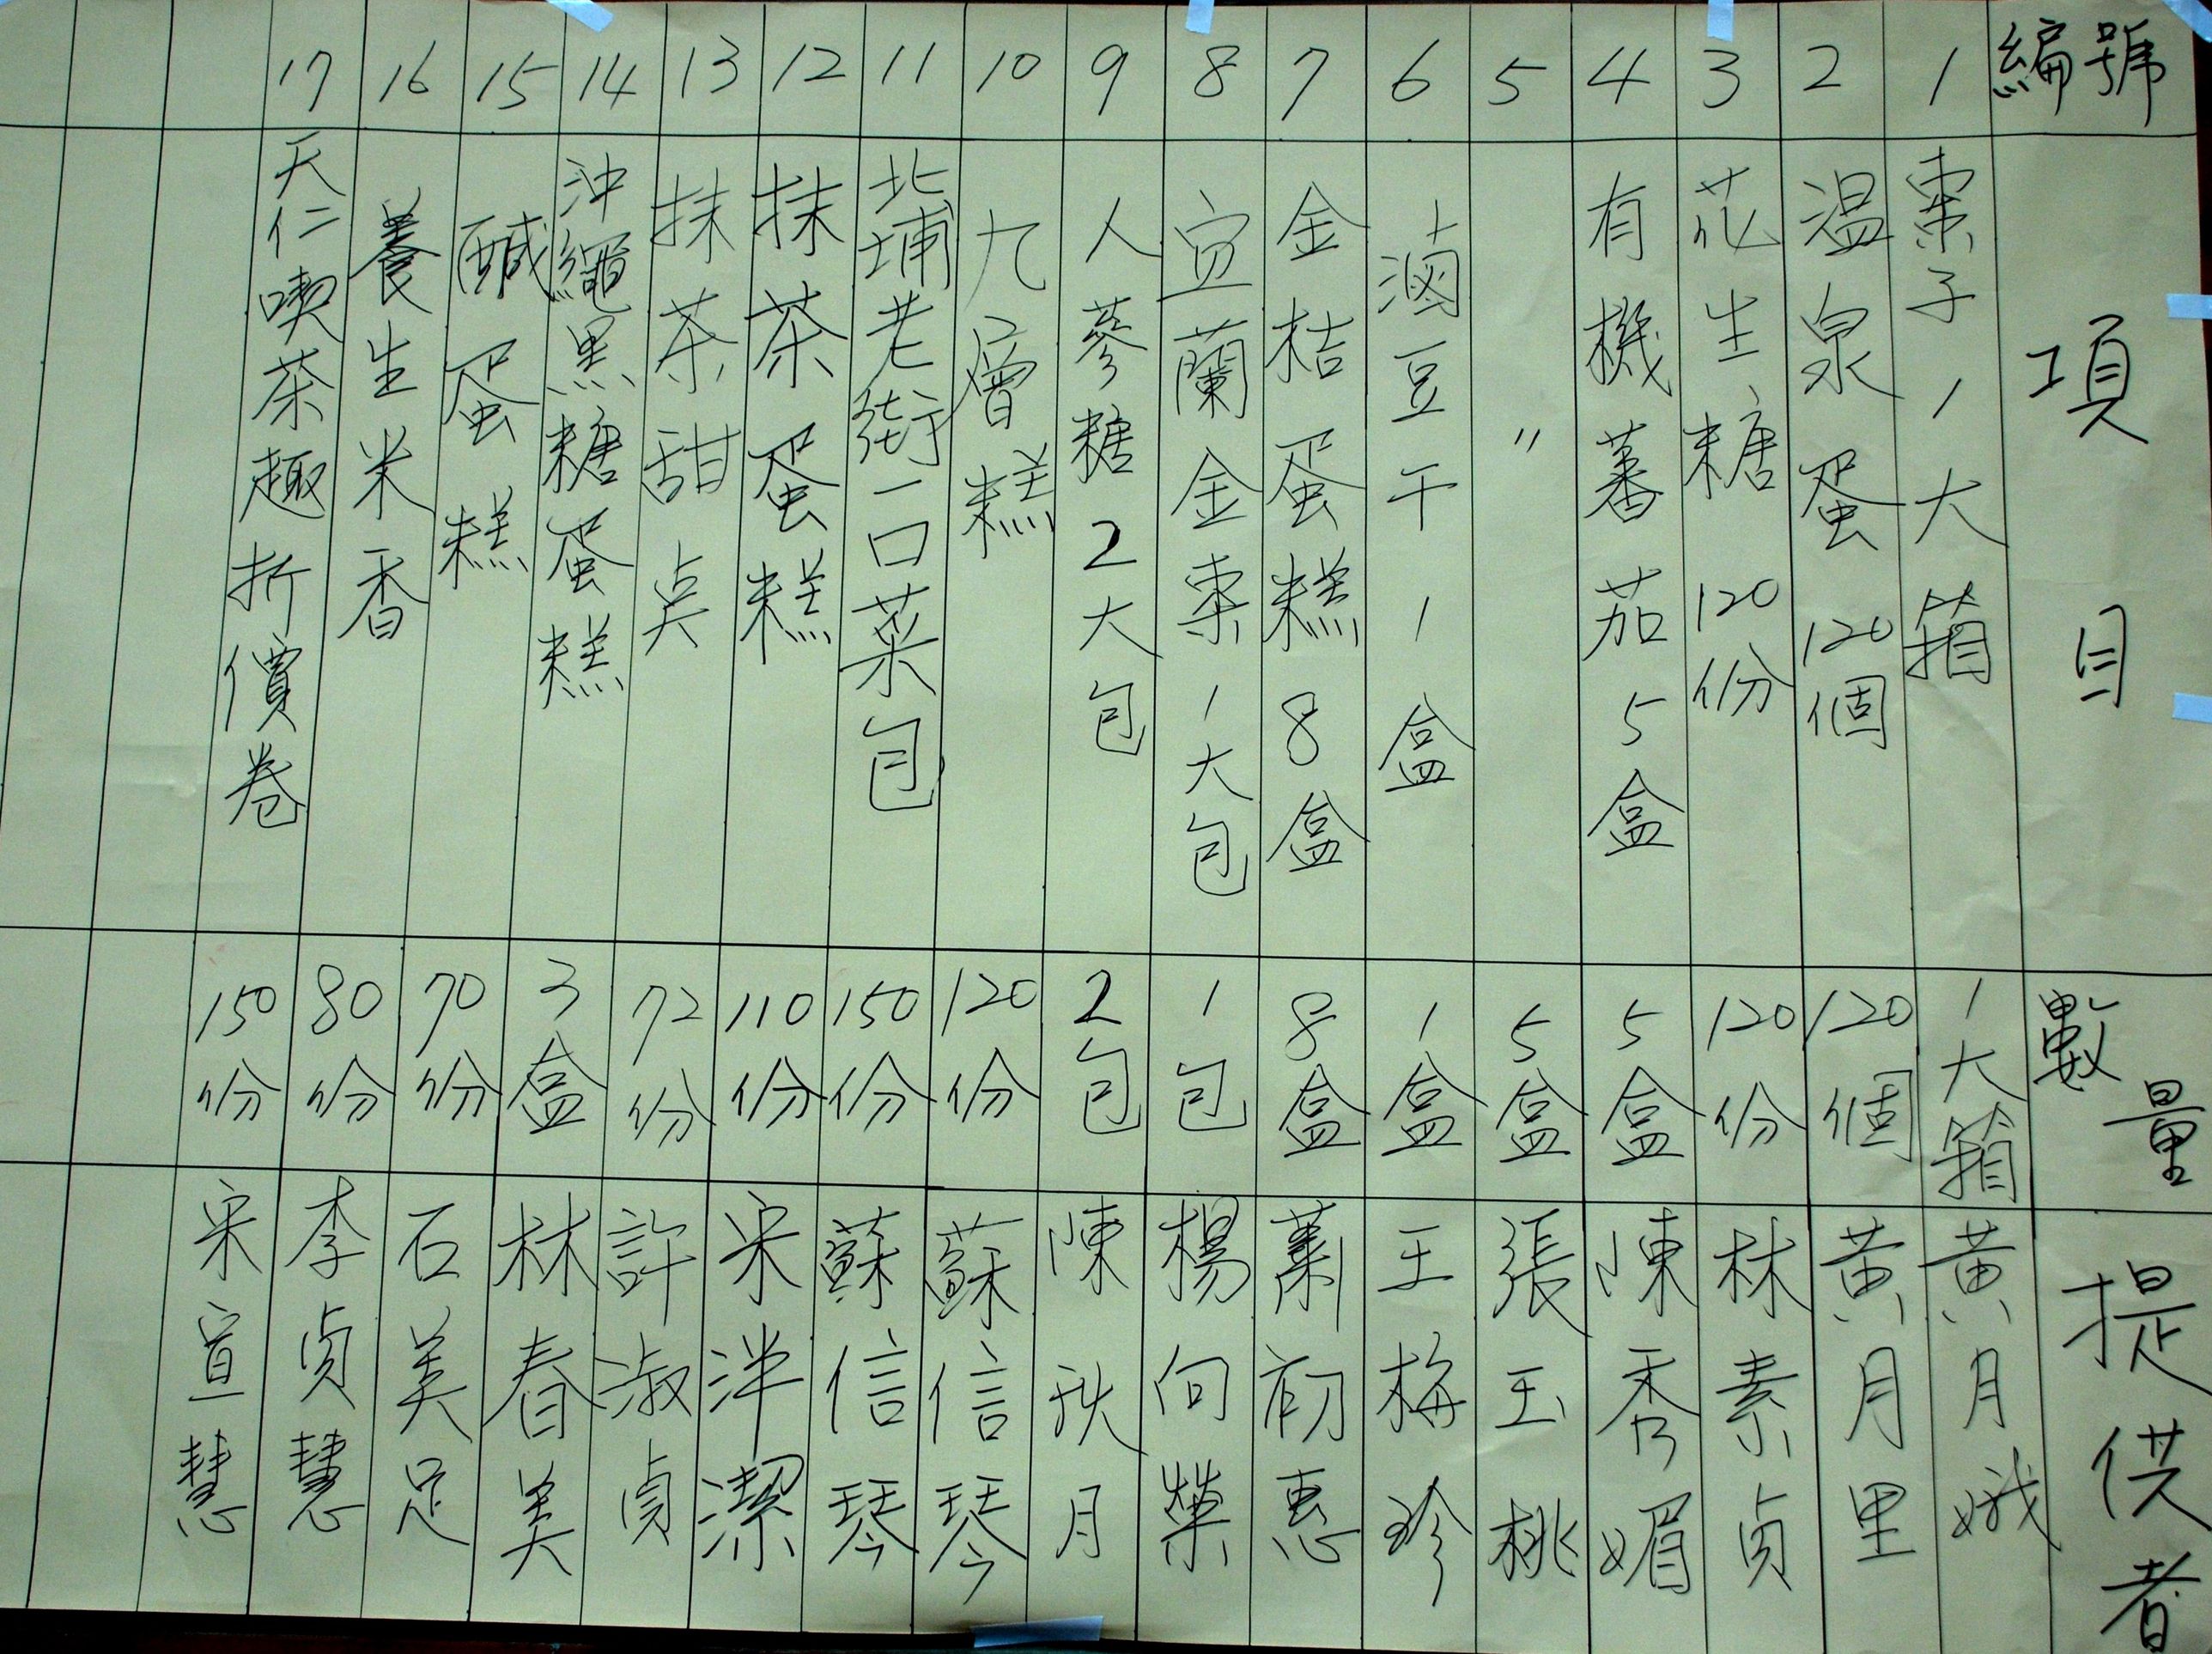 編號 項目 數量 提供者
1 棗子1大箱 1大箱 黃月娥
2 溫泉蛋120個 120個 黃月里
3 花生糖120份 120份 林素貞
4 有機蕃茄5盒 5盒 陳秀媚
5 〃 5盒 張玉桃
6 滷豆干1盒 1盒 王梅珍
7 金桔蛋糕8盒 8盒 蕭初惠
8 宜蘭金棗1大包 1包 楊向榮
9 人蔘糖2大包 2包 陳秋月
10 九層糕 120份 蘇信琴
11 北埔老街一口菜包 150份 蘇信琴
12 抹茶蛋糕 110份 宋泮潔
13 抹茶甜點 72份 許淑貞
14 沖繩黑糖蛋糕 3盒 林春美
15 鹹蛋糕 70份 石美足
16 養生米香 80份 李貞慧
17 天仁喫茶趣折價卷 150份 宋宣慧